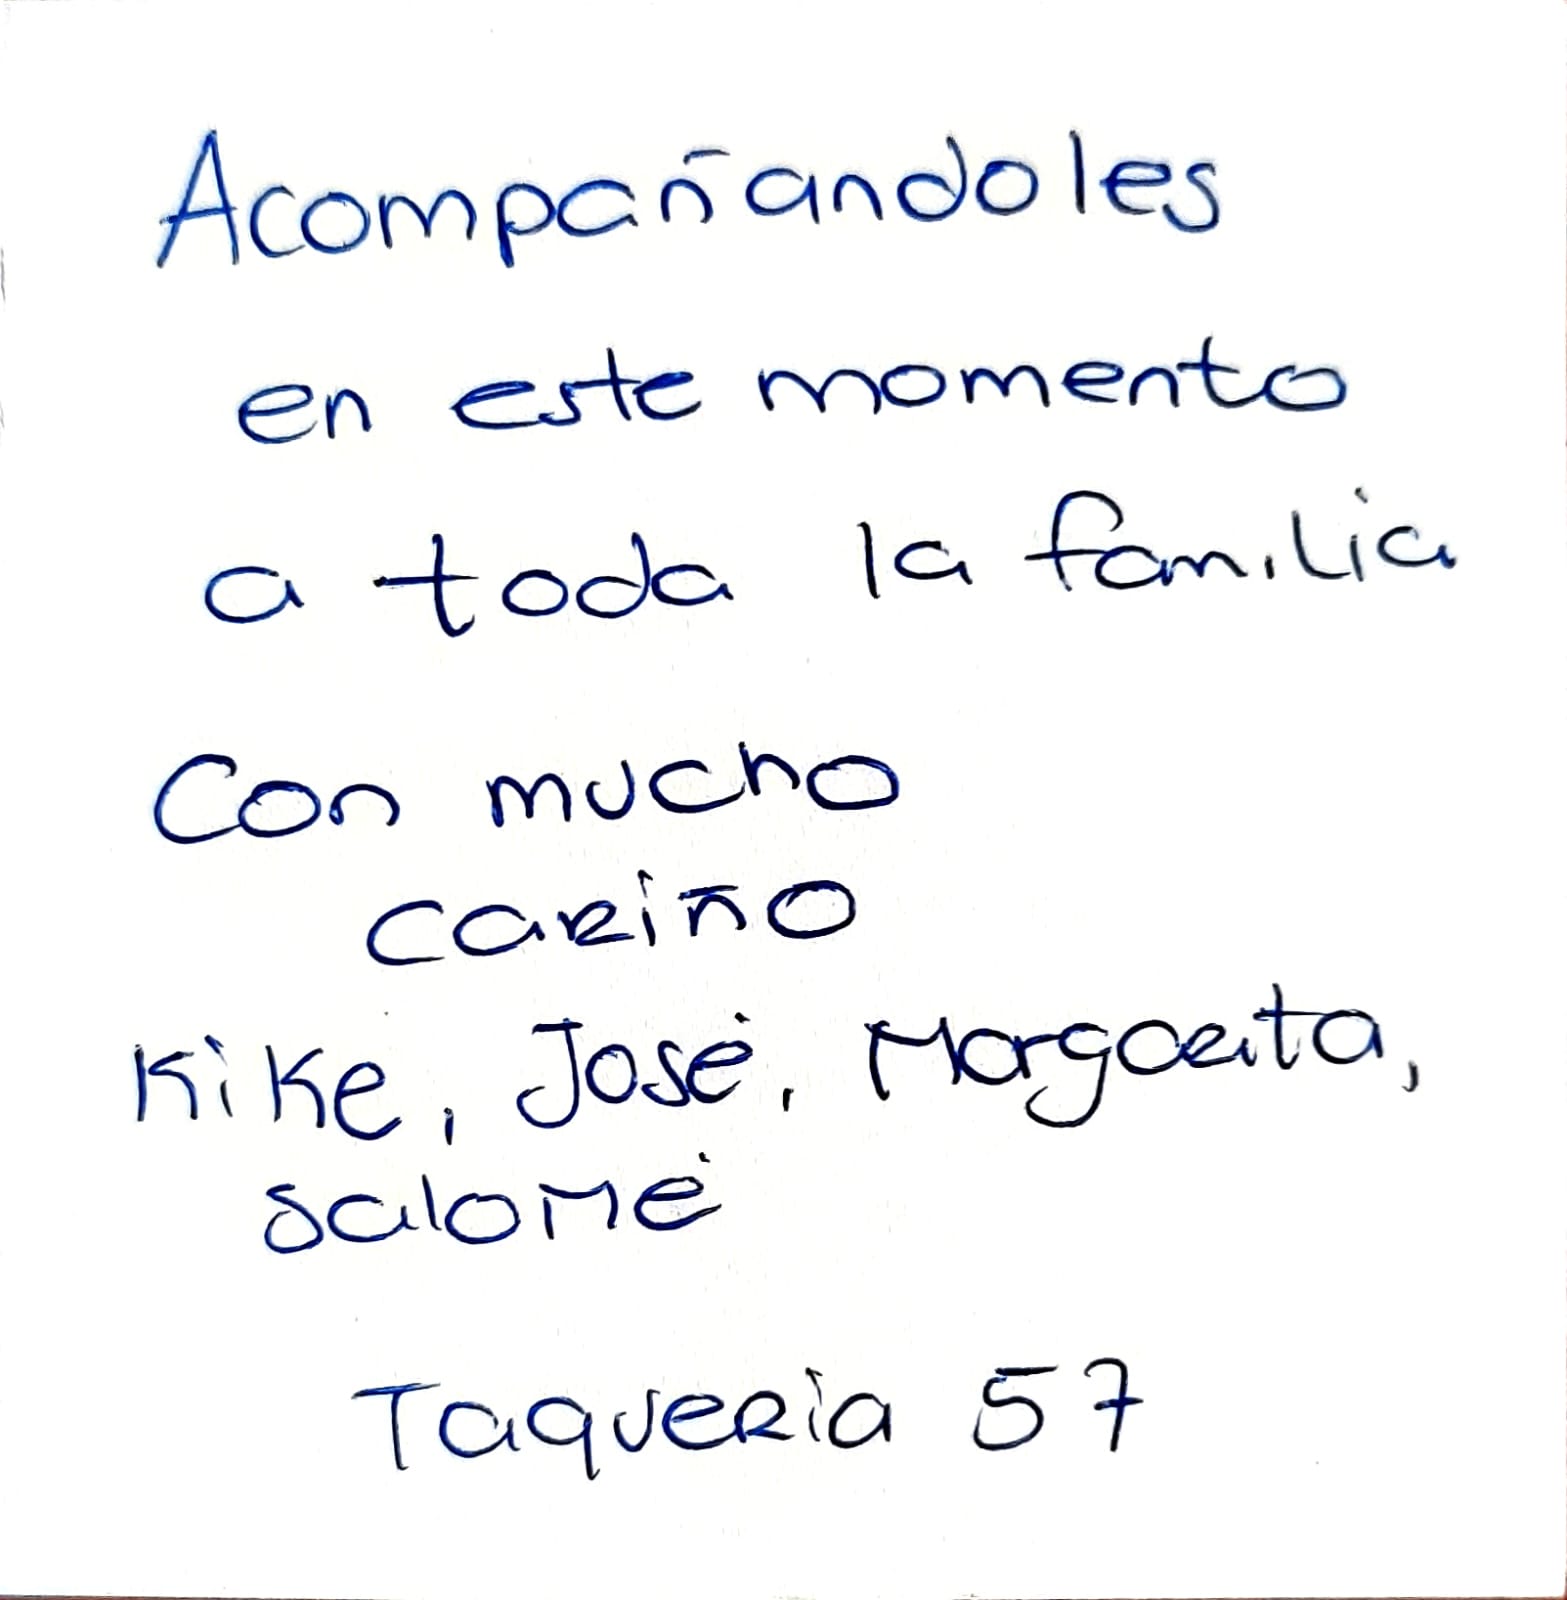 Acompañandoles
en este momento
a toda la familia
Con mucho
cariño
Kike, José, Margarita,
Salomé
Taqueria 57